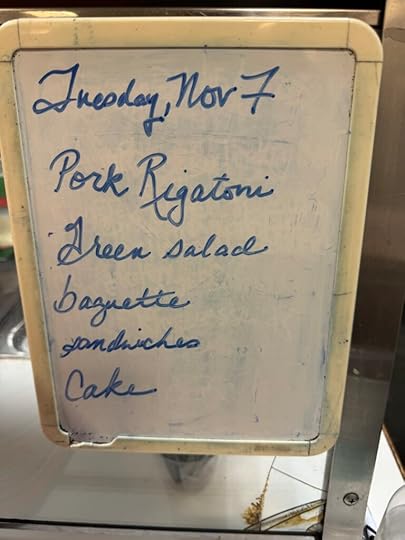 Tuesday, Nov 7
Pork Rigatoni
Green salad
baguette
sandwiches
Cake